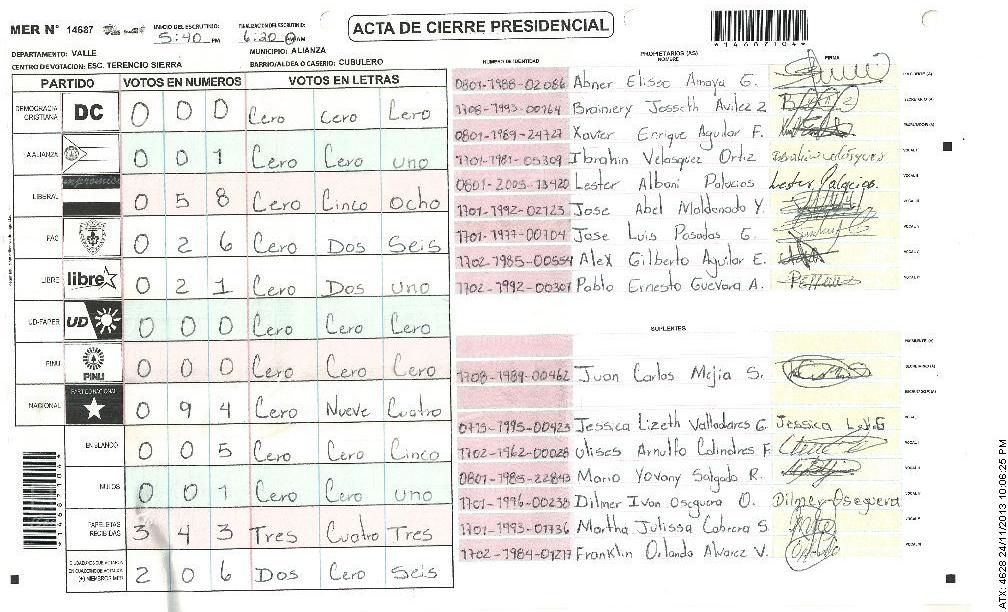 MER N° 14687 INICIO DEL ESCRUTINIO: 5:40 PM FINALIZACION DEL ESCRUTINIO: 6:20 PM AM
ACTA DE CIERRE PRESIDENCIAL
*14687104*
DEPARTAMENTO: VALLE MUNICIPIO: ALIANZA
CENTRO DE VOTACION: ESC. TERENCIO SIERRA BARRIO/ALDEA O CASERIO: CUBULERO
PARTIDO VOTOS EN NUMEROS VOTOS EN LETRAS
DEMOCRACIA CRISTIANA DC 0 0 0 Cero Cero Cero
LA ALIANZA 0 0 1 Cero Cero uno
LIBERAL 0 5 8 Cero Cinco ocho
PAC 0 2 6 Cero Dos Seis
LIBRE libre 0 2 1 Cero Dos uno
UD-FAPER UD 0 0 0 Cero Cero Cero
PINU PINU 0 0 0 Cero Cero Cero
NACIONAL PARTIDO NACIONAL 0 9 4 Cero Nueve Cuatro
EN BLANCO 0 0 5 Cero Cero Cinco
NULOS 0 0 1 Cero Cero uno
PAPELETAS RECIBIDAS 3 4 3 Tres Cuatro Tres
(+) MIEMBROS MER 2 0 6 Dos Cero Seis
NUMERO DE IDENTIDAD PROPIETARIOS (AS) NOMBRE FIRMA
0801-1988-02086 Abner Eliseo Amaya G.
1708-1993-00164 Brainery Josseth Avilez Z
0801-1989-24727 Xavier Enrique Aguilar F.
1701-1981-05309 Ibrahin Velasquez Ortiz
0801-2005-13420 Lester Albani Palacios
1701-1992-02123 Jose Abel Maldonado Y.
1701-1977-00704 Jose Luis Posadas G.
1702-1985-00554 Alex Gilberto Aguilar E.
1702-1992-00301 Pablo Ernesto Guevara A.
SUPLENTES
1708-1989-00462 Juan Carlos Mejia S.
0715-1995-00423 Jessica Lizeth Valladares G. Jessica
1702-1962-00028 Ulises Arnulfo Calindres F.
0801-1985-22843 Mario Yovany Salgado R.
1701-1976-00238 Dilmer Ivan Oseguera O. Dilmer Oseguera
1701-1993-01736 Martha Julissa Cabrera S
1702-1984-01217 Franklin Orlando Alvarez V.
ATX: 4628 24/11/2013 10:08:25 PM